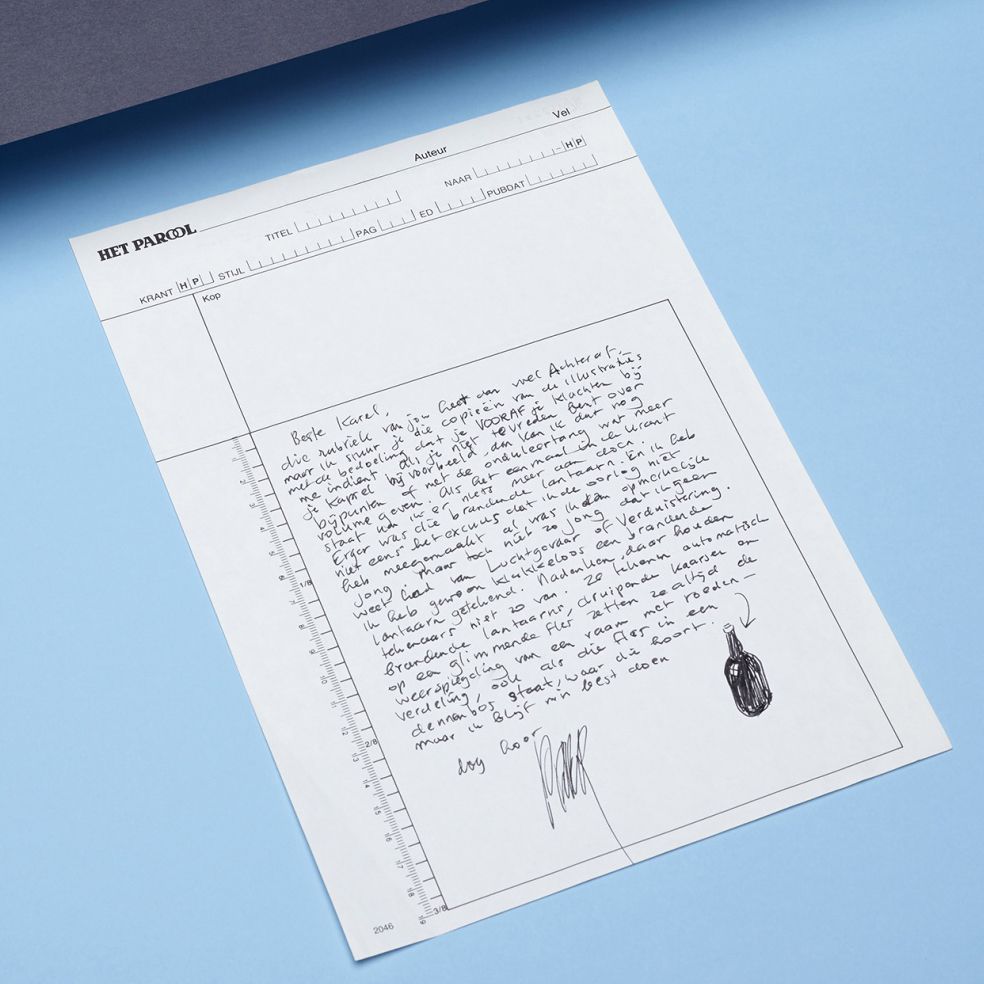 Vel
Auteur
HET PAROOL
TITEL NAAR - H P
KRANT H P STIJL PAG ED PUBDAT
Kop
Beste Karel,
die rubriek van jou heet dan wel Achteraf,
maar ik stuur je die copieën van de illustraties
met de bedoeling dat je VOORAF je klachten bij
me indient. Als je niet tevreden bent over
je kapsel bijvoorbeeld, dan kan ik dat nog
bijpunten of met de onduleertang wat meer
volume geven. Als het eenmaal in de krant
staat kan ik er niets meer aan doen.
Erger was die brandende lantaarn. En ik heb
niet eens het excuus dat ik de oorlog niet
heb meegemaakt al was ik toen opmerkelijke
jong maar toch niet zo jong dat ik geen
weet had van Luchtgevaar of Verduistering.
ik heb gewoon klakkeloos een brandende
lantaarn getekend. Nadenken, daar houden
tekenaars niet zo van. Ze tekenen automatisch
brandende lantaarns, druipende kaarsen en
op een glimmende fles zetten ze altijd de
weerspiegeling van een raam met roeden-
verdeling, ook als die fles in een
dennenbos staat, waar die hoort.
maar ik blijf m'n best doen
dag hoor
1/8
2/8
3/8
2046